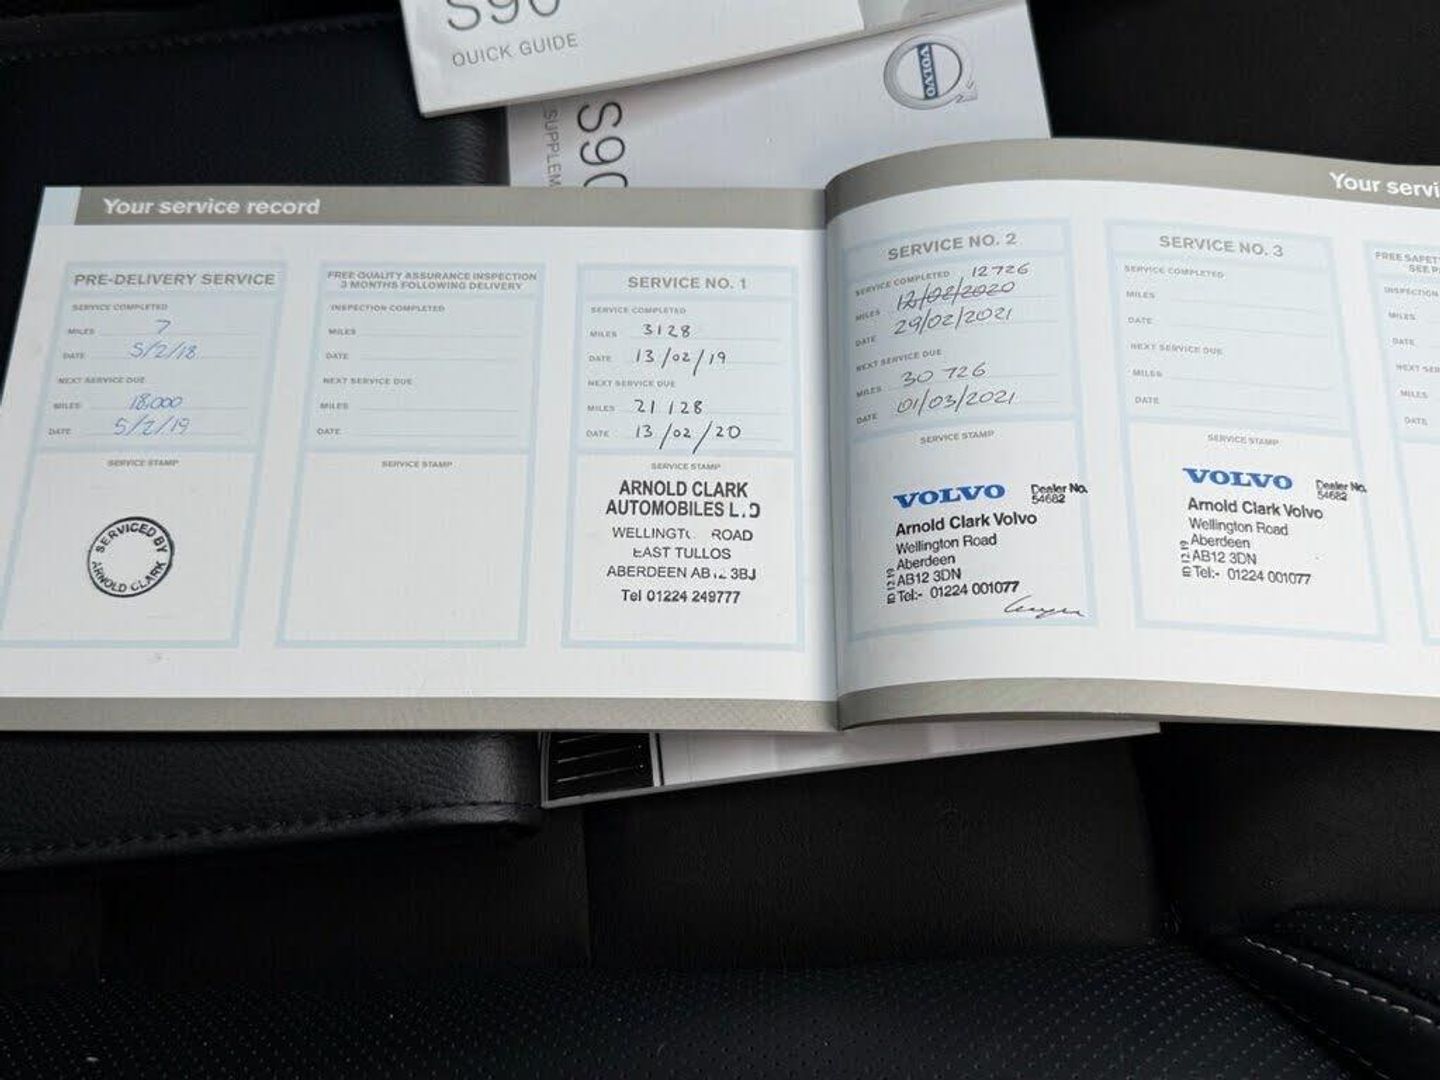 S90
QUICK GUIDE
VOLVO
S90
Your service record
PRE-DELIVERY SERVICE
SERVICE COMPLETED
MILES 7
DATE 5/2/18
NEXT SERVICE DUE
MILES 18,000
DATE 5/2/19
SERVICE STAMP
SERVICED BY
ARNOLD CLARK
FREE QUALITY ASSURANCE INSPECTION
3 MONTHS FOLLOWING DELIVERY
INSPECTION COMPLETED
MILES
DATE
NEXT SERVICE DUE
MILES
DATE
SERVICE STAMP
SERVICE NO. 1
SERVICE COMPLETED
MILES 3128
DATE 13/02/19
NEXT SERVICE DUE
MILES 21128
DATE 13/02/20
SERVICE STAMP
ARNOLD CLARK
AUTOMOBILES
ROAD
EAST TULLOS
ABERDEEN 3BJ
Tel 01224 249777
Your servi
SERVICE NO. 2
SERVICE COMPLETED 12726
MILES 12/02/2020
DATE 29/02/2021
NEXT SERVICE DUE
MILES 30 726
DATE 01/03/2021
SERVICE STAMP
VOLVO Dealer No.
54682
Arnold Clark Volvo
Wellington Road
Aberdeen
AB12 3DN
Tel:- 01224 001077
SERVICE NO. 3
SERVICE COMPLETED
MILES
DATE
NEXT SERVICE DUE
MILES
DATE
SERVICE STAMP
VOLVO Dealer No.
54682
Arnold Clark Volvo
Wellington Road
Aberdeen
AB12 3DN
Tel:- 01224 001077
FREE SAFET
SEE P
INSPECTION
MILES
DATE
NEXT SER
MILES
DATE